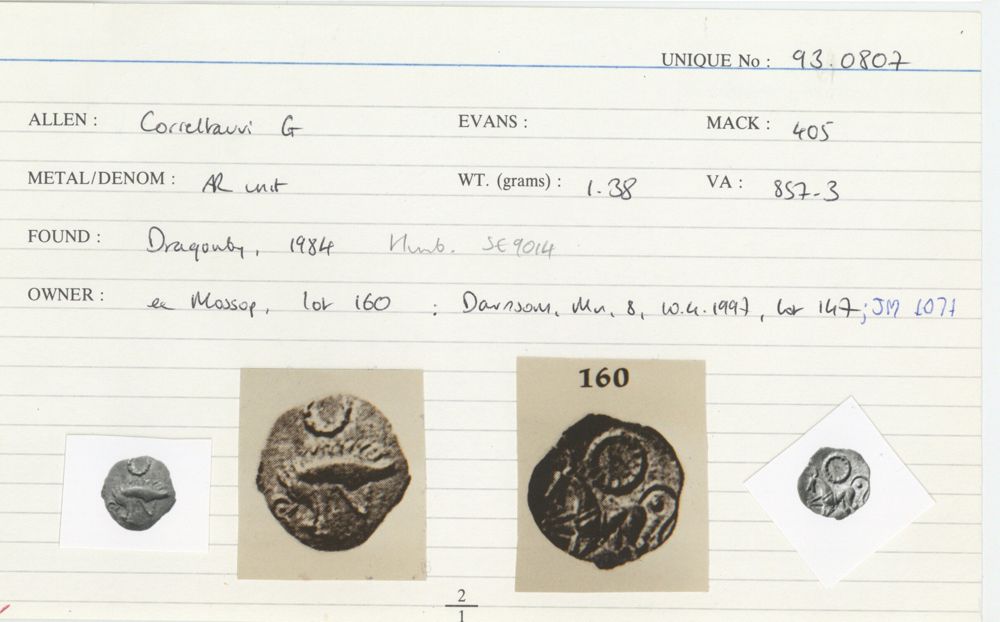 UNIQUE No : 93.0807
ALLEN : Correltauvi G EVANS : MACK : 405
METAL/DENOM : AR unit WT. (grams) : 1.38 VA : 857-3
FOUND : Dragonby, 1984 Humb. SE9014
OWNER : ex Mossop, lot 160 ; Davissons, 8, 10.4.1997, lot 147; JM 107
160
2
1